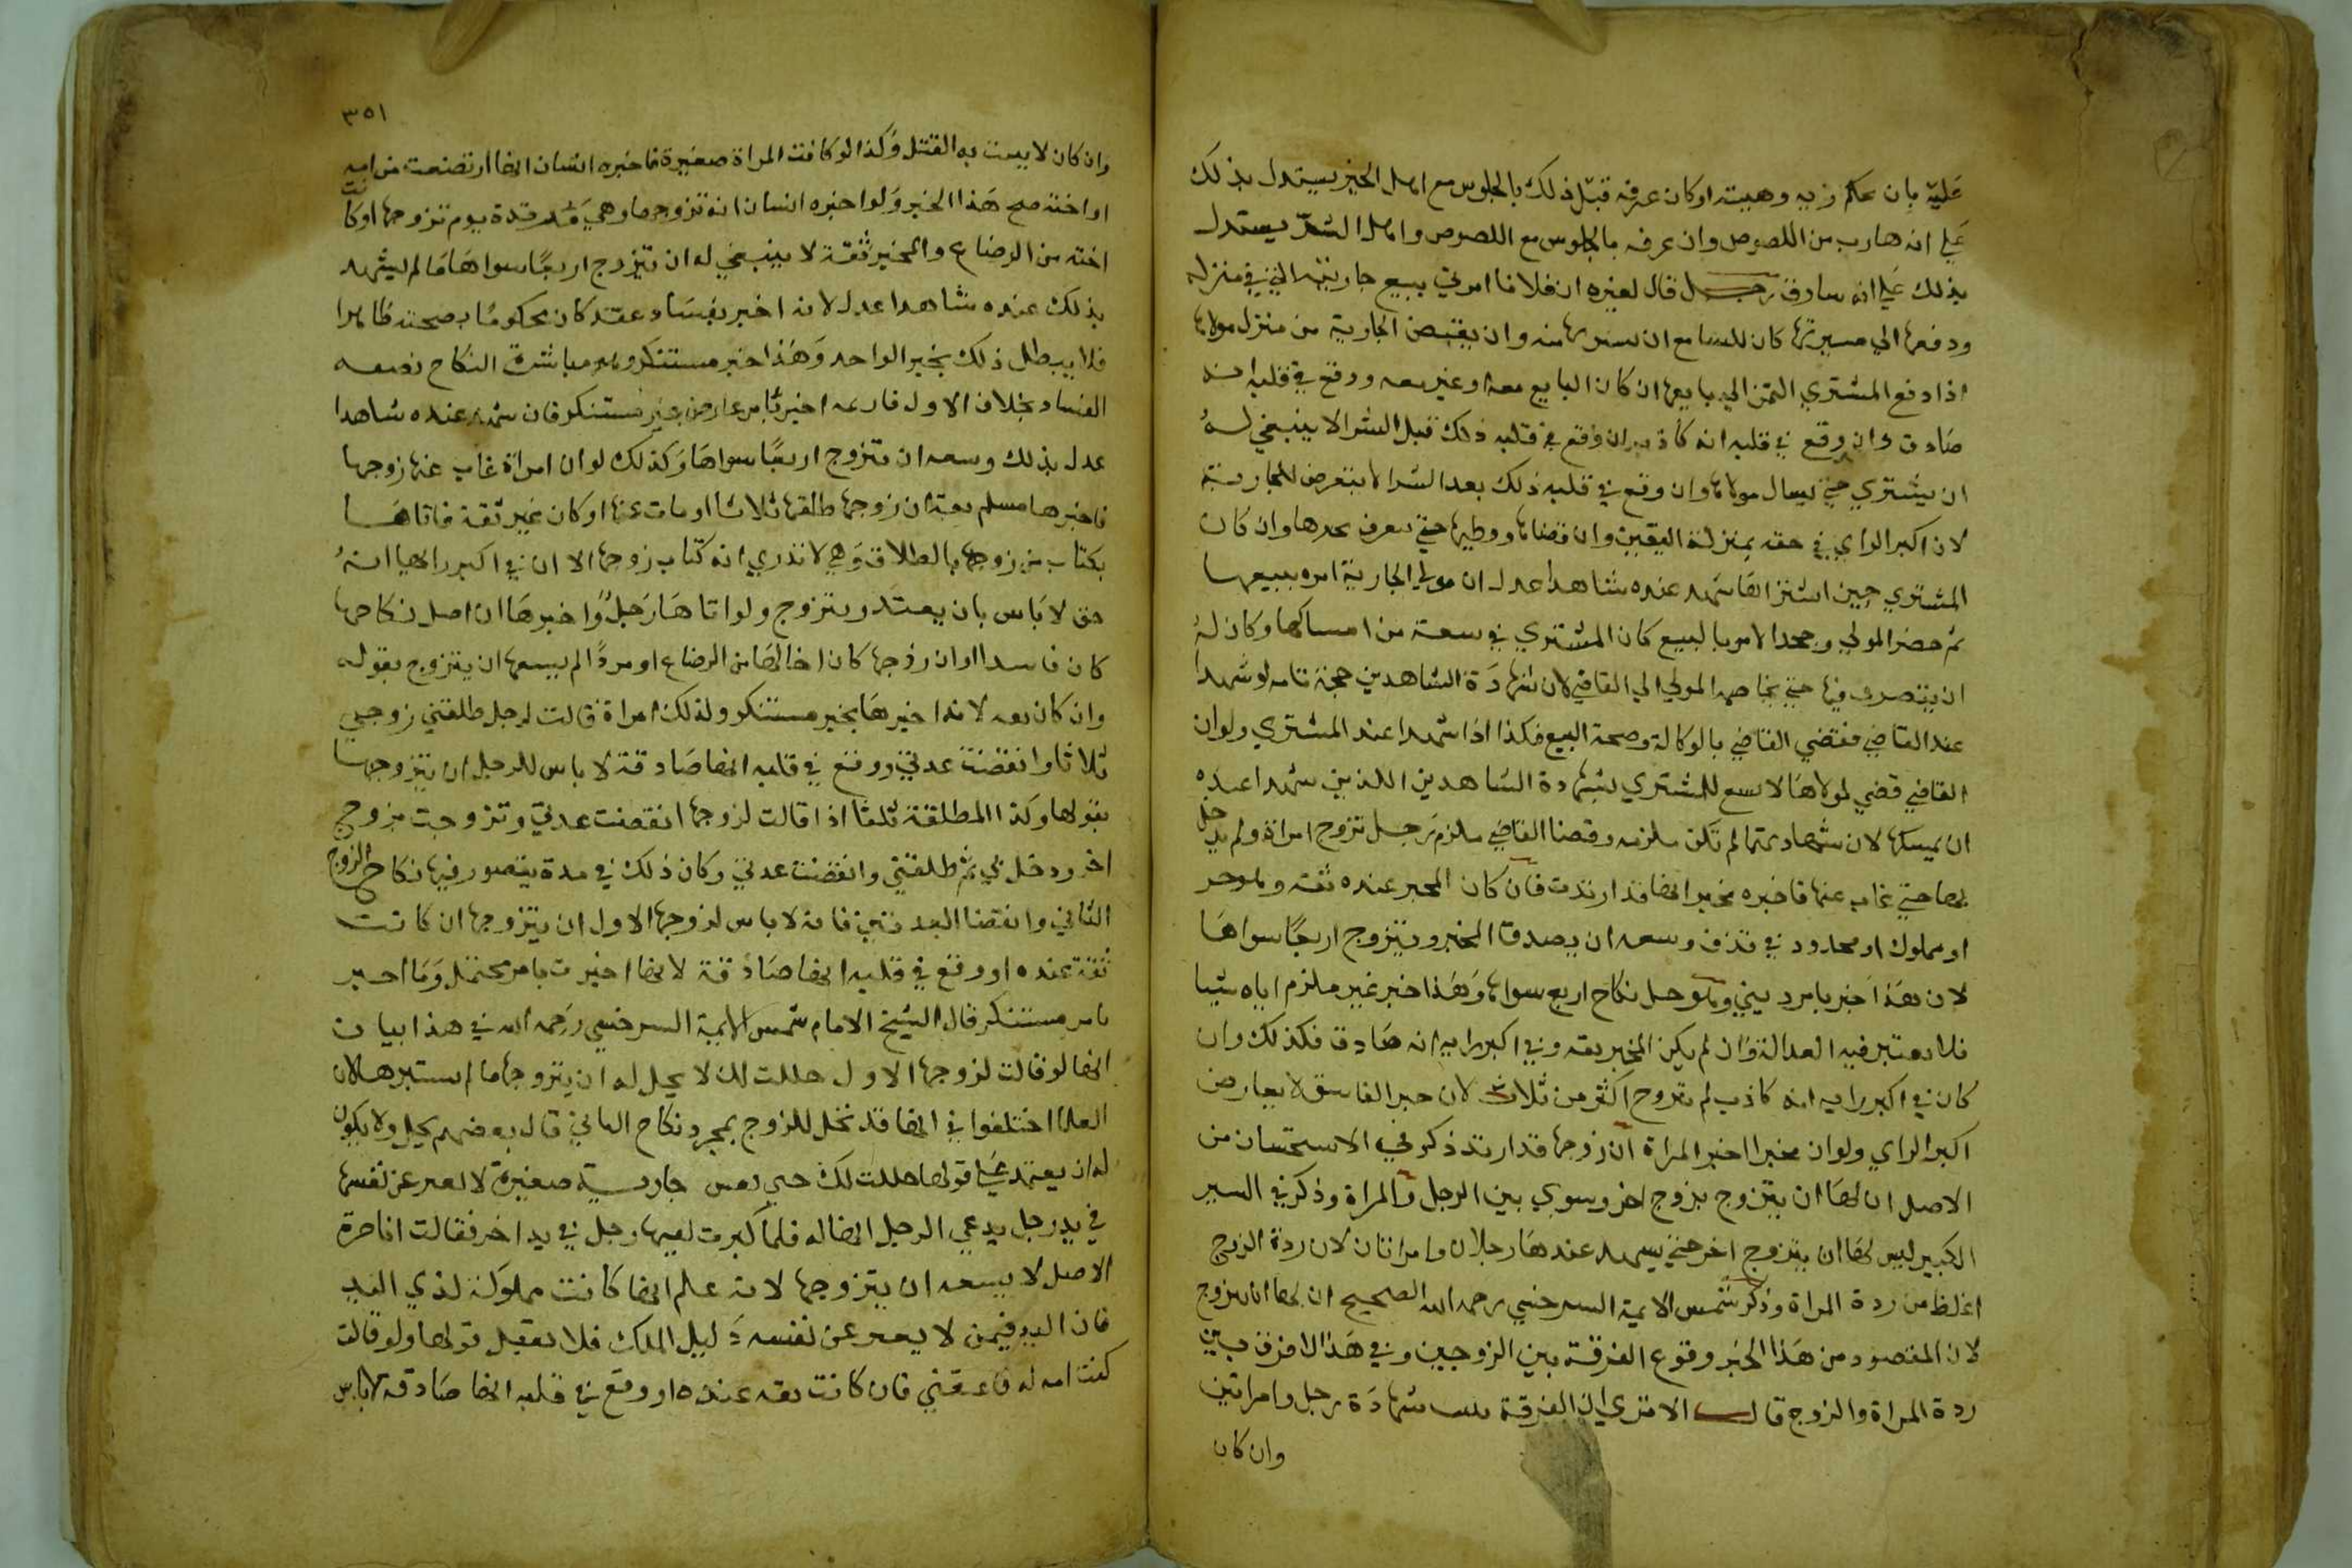 عليه بان يحكم زيه وهيئته او كان عرفه قبل ذلك بالجلوس مع اهل الخير يستدل بذلك
علي انه هارب من اللصوص وان عرفه بالجلوس مع اللصوص واهل الشر يستدل
بذلك علي انه سارق رجل قال لغيره ان فلانا امرني ببيع جاريته التي في منزله
ودفعها الي مشتريها كان للسامع ان يشتريها منه وان يقبض الجارية من منزل مولاها
اذا دفع المشتري الثمن الي بايعها ان كان البايع ثقة او غير ثقة ووقع في قلبه انه
صادق وان وقع في قلبه انه كاذب ان وقع في قلبه ذلك قبل الشرا لا ينبغي له
ان يشتري حتي يسال مولاها وان وقع في قلبه ذلك بعد الشرا لا يتعرض للجارية
لان اكبر الراي في حقه بمنزلة اليقين وان قبضها ووطيها حتي يتعرف خبرها وان كان
المشتري حين اشتراها شهد عنده شاهدا عدل ان مولي الجارية امره ببيعها
ثم حضر المولي وجحد الامر بالبيع كان المشتري في سعة من امساكها وكان له
ان يتصرف فيها حتي يخاصمه المولي الي القاضي لان شهادة الشاهدين حجة تامه لو شهدا
عند القاضي فقضي القاضي بالوكالة وصحة البيع فكذا اذا شهدا عند المشتري ولو ان
القاضي قضي لمولاها لا يسع للمشتري بشهادة الشاهدين اللذين شهدا عنده
ان يمسكها لان شهادتهما لم تكن ملزمه وقضا القاضي ملزم رجل تزوج امراة ولم يدخل
بها حتي غاب عنها فاخبره مخبر انها قد ارتدت فان كان المخبر عنده ثقه وهو حر
او مملوك او محدود في قذف وسعه ان يصدق المخبر ويتزوج اربعا سواها
لان هذا خبر بامر ديني وهو حل نكاح اربع سواها وهذا خبر غير ملزم اياه شيا
فلا يعتبر فيه العدالة وان لم يكن المخبر ثقه وفي اكبر رايه انه صادق فكذلك وان
كان في اكبر رايه انه كاذب لم يتزوج اكثر من ثلاث لان خبر الفاسق لا يعارض
اكبر الراي ولو ان مخبرا اخبر المراة ان زوجها قد ارتد ذكر في الاستحسان من
الاصل ان لها ان يتزوج بزوج اخر وسوي بين الرجل والمراة وذكر في السير
الكبير ليس لها ان يتزوج اخر حتي يشهد عندها رجلان او رجل وامراتان لان ردة الزوج
اغلظ من ردة المراة وذكر شمس الايمة السرخسي رحمه الله الصحيح ان لها ان يتزوج
لان المقصود من هذا الخبر وقوع الفرقة بين الزوجين وفي هذا لا فرق بين
ردة المراة والزوج قال الا تري ان الفرقة يثبت بشهادة رجل وامراتين
وان كان
٣٥١
وان كان لا يثبت به القتل وكذا لو كانت المراة صغيرة فاخبره انسان انها ارتضعت من امه
او اخته صح هذا الخبر ولو اخبره انسان انه تزوجها وهي مرتدة يوم تزوجها او كانت
اخته من الرضاع والمخبر ثقة لا ينبغي له ان يتزوج اربعا سواها ما لم يشهد
بذلك عنده شاهدا عدل لانه اخبر بفساد عقد كان محكوما بصحته ظاهرا
فلا يبطل ذلك بخبر الواحد وهذا خبر مستنكر مباشرة النكاح بصفه
الفساد بخلاف الاول فان ثمه اخبر بامر عارض غير مستنكر فان شهد عنده شاهدا
عدل بذلك وسعه ان يتزوج اربعا سواها وكذلك لو ان امراة غاب عنها زوجها
فاخبرها مسلم ثقة ان زوجها طلقها ثلاثا او مات عنها او كان غير ثقة فاتاها
بكتاب من زوجها بالطلاق وهي لا تدري انه كتاب زوجها الا ان في اكبر رايها انه
حق لا باس بان يعتد ويتزوج ولو اتاها رجل واخبرها ان اصل نكاحها
كان فاسدا او ان زوجها كان اخا لها من الرضاع او مرتدا لم يسعها ان يتزوج بقوله
وان كان ثقه لانه اخبرها بخبر مستنكر ولذلك امراة قالت لرجل طلقني زوجي
ثلاثا وانقضت عدتي ووقع في قلبه انها صادقة لا باس للرجل ان يتزوجها
بقولها وكذا المطلقة ثلثا اذا قالت لزوجها انقضت عدتي وتزوجت بزوج
اخر ودخل بي ثم طلقني وانقضت عدتي وكان ذلك في مدة يتصور فيها نكاح الزوج
الثاني وانقضا العدتين فانه لا باس لزوجها الاول ان يتزوجها ان كانت
ثقة عنده او وقع في قلبه انها صادقة لانها اخبرت بامر محتمل وما اخبر
بامر مستنكر قال الشيخ الامام شمس الايمة السرخسي رحمه الله في هذا بيان
انها لو قالت لزوجها الاول حللت لك لا يحل له ان يتزوجها ما لم يستفسرها لان
العلما اختلفوا في انها قد تحل للزوج بمجرد نكاح الثاني قال بعضهم يحل ولا يكون
له ان يعتمد علي قولها حللت لك حتي يفسر جارية صغيرة لا تعبر عن نفسها
في يد رجل يدعي الرجل انها له فلما كبرت لقيها رجل في بلد اخر فقالت انا حرة
الاصل لا يسعه ان يتزوجها لانه علم انها كانت مملوكة لذي اليد
فان اليد فيمن لا يعبر عن نفسه دليل الملك فلا يقبل قولها ولو قالت
كنت امه له فاعتقني فان كانت ثقه عنده او وقع في قلبه انها صادقة لا باس